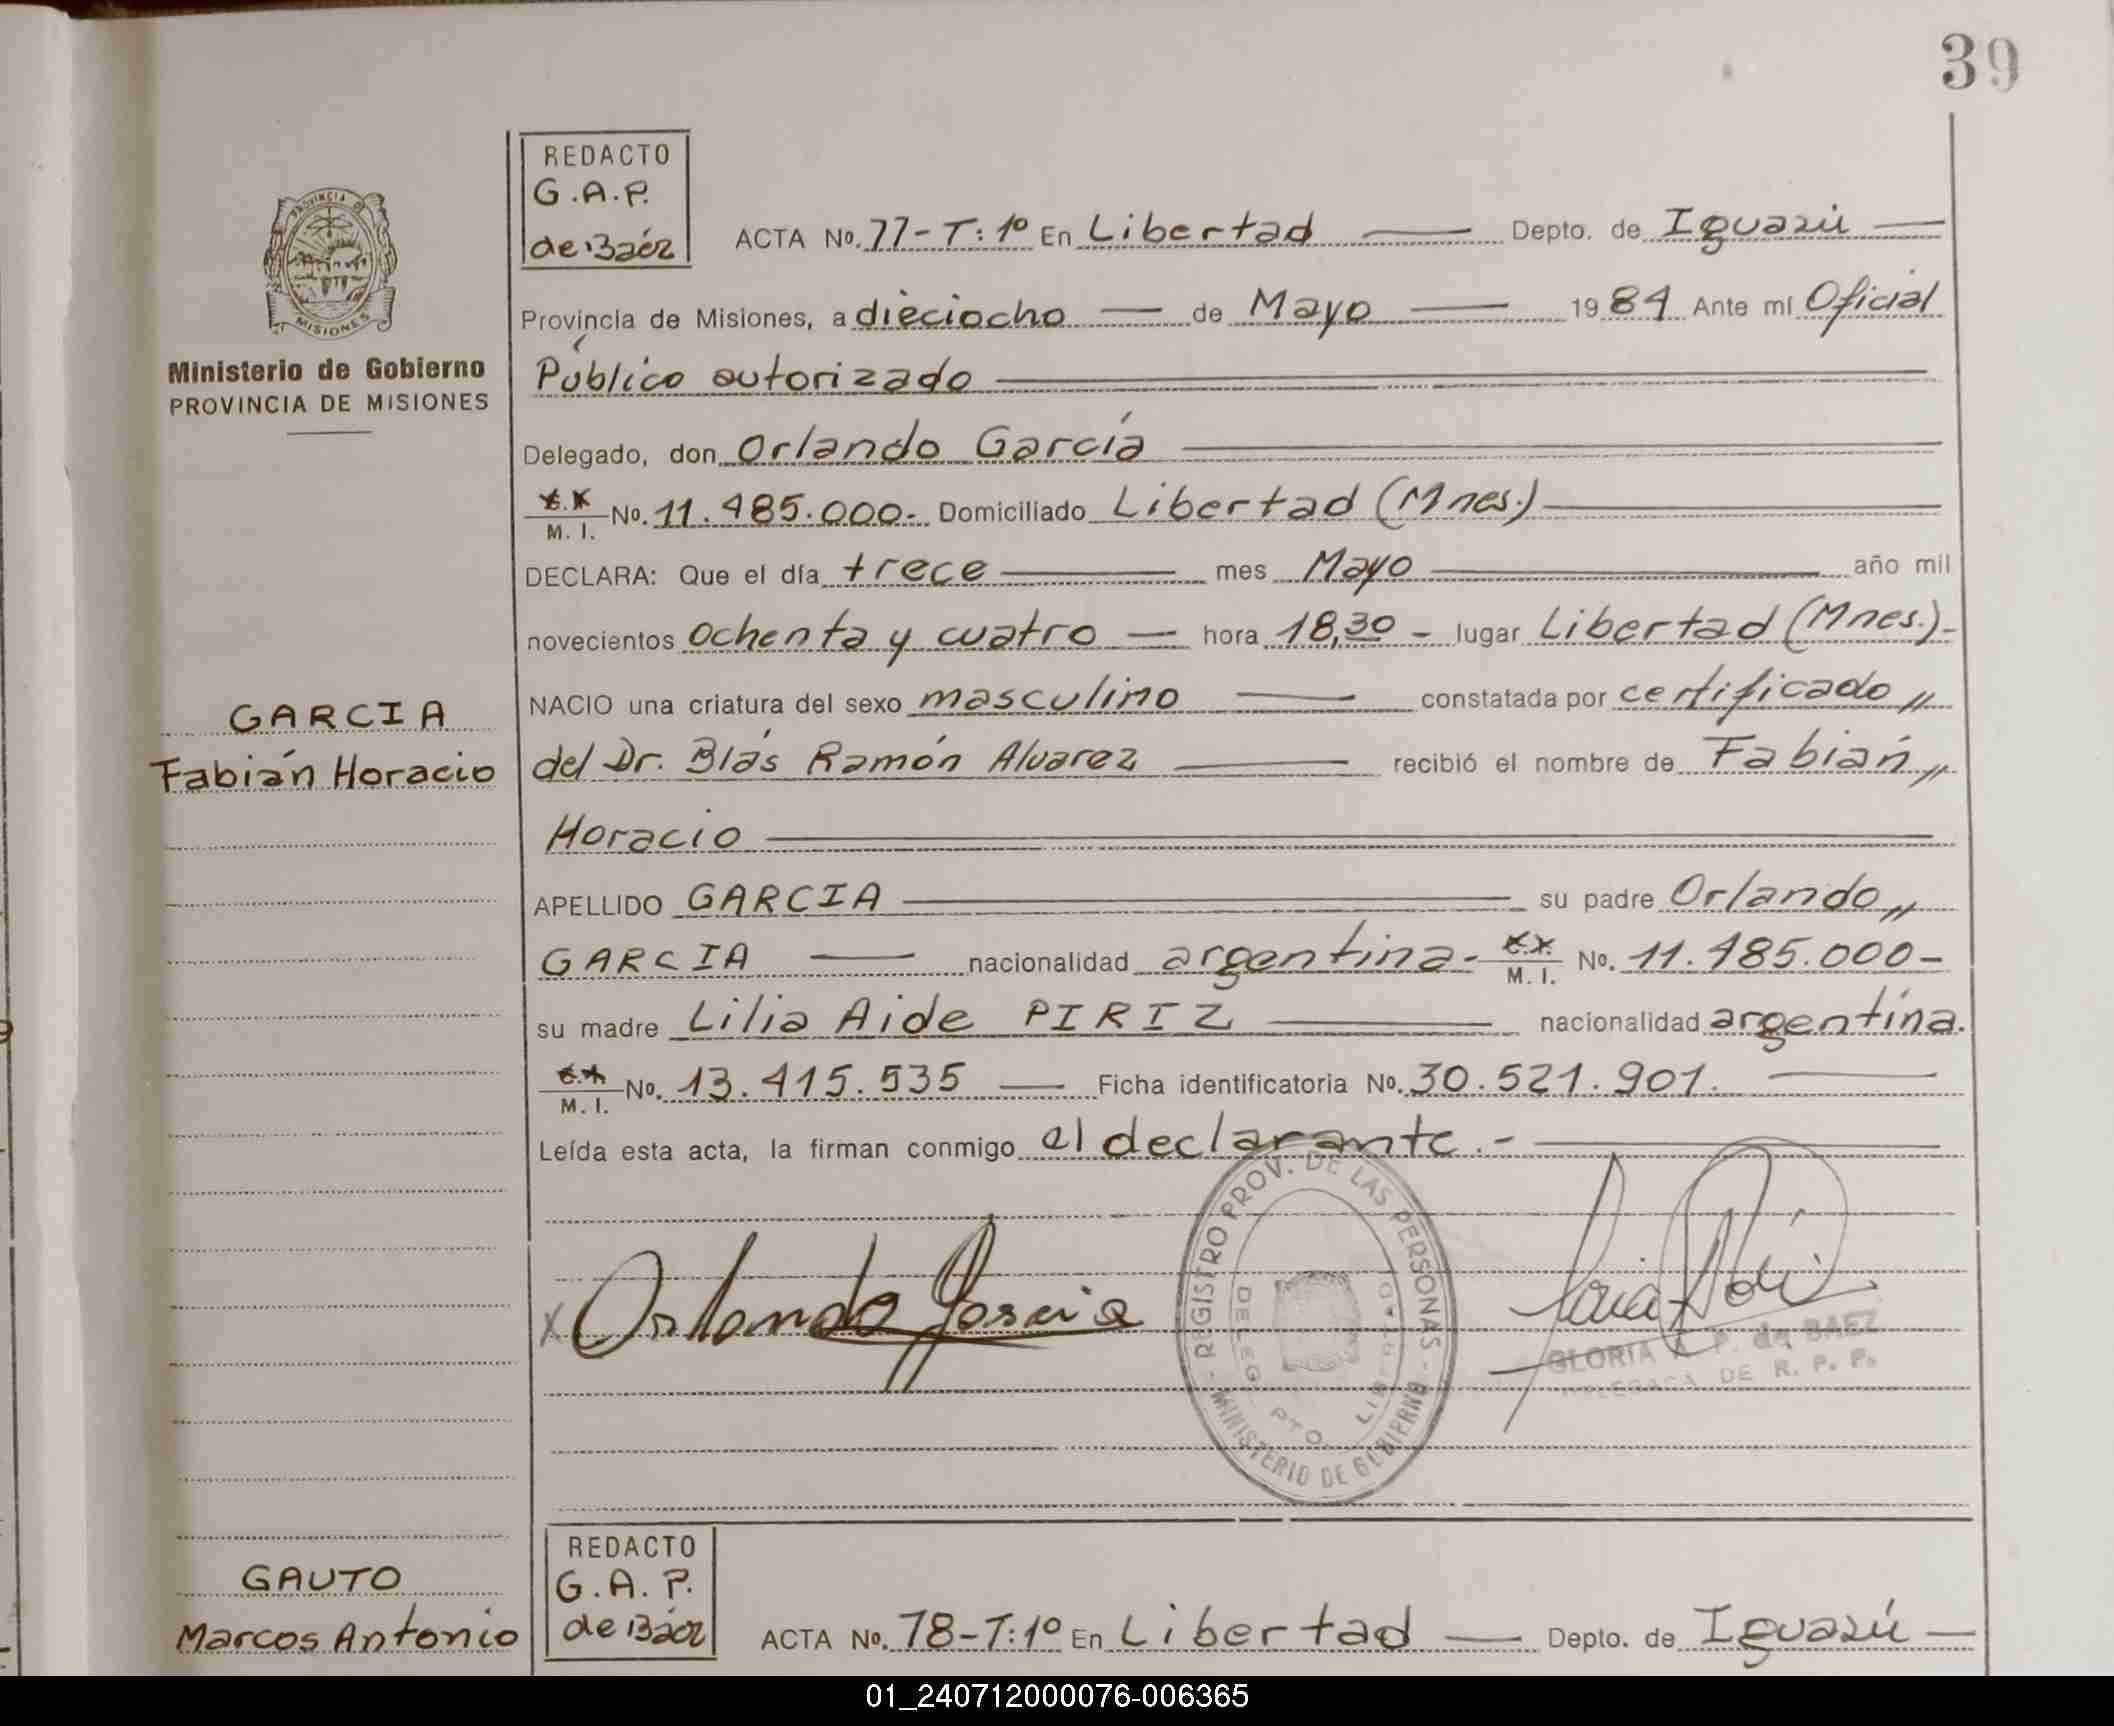 39
PROVINCIA DE
MISIONES
Ministerio de Gobierno
PROVINCIA DE MISIONES
REDACTO
G.A.P.
de Báez
ACTA No. 77-T:1º En Libertad Depto. de Iguazú
Provincia de Misiones, a dieciocho de Mayo 1984 Ante mí Oficial
Público autorizado
Delegado, don Orlando García
M. I. No. 11.485.000.- Domiciliado Libertad (Mnes.)
DECLARA: Que el día trece mes Mayo año mil
novecientos ochenta y cuatro hora 18,30 - lugar Libertad (Mnes.)-
GARCIA
Fabián Horacio
NACIO una criatura del sexo masculino constatada por certificado „
del Dr. Blás Ramón Alvarez recibió el nombre de Fabián „
Horacio
APELLIDO GARCIA su padre Orlando „
GARCIA nacionalidad argentina.- M. I. No. 11.485.000-
su madre Lilia Aide PIRIZ nacionalidad argentina.
M. I. No. 13.415.535 Ficha identificatoria No. 30.521.901.
Leída esta acta, la firman conmigo el declarante.-
x Orlando Garcia
REGISTRO PROV. DE LAS PERSONAS - MINISTERIO DE GOBIERNO -
DELEG. PTO. LIBERTAD
GLORIA A. P. de BAEZ
DELEGADA DE R. P. P.
GAUTO
Marcos Antonio
REDACTO
G.A.P.
de Báez
ACTA No. 78-T:1º En Libertad Depto. de Iguazú
01_240712000076-006365